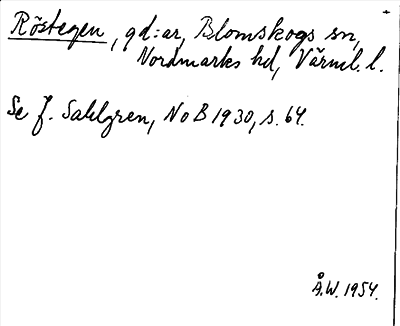 Röstegen, gd:ar, Blomskogs sn,
Nordmarks hd, Värml. l.
Se J. Sahlgren, NoB 1930, s. 64.
Å.W. 1954.